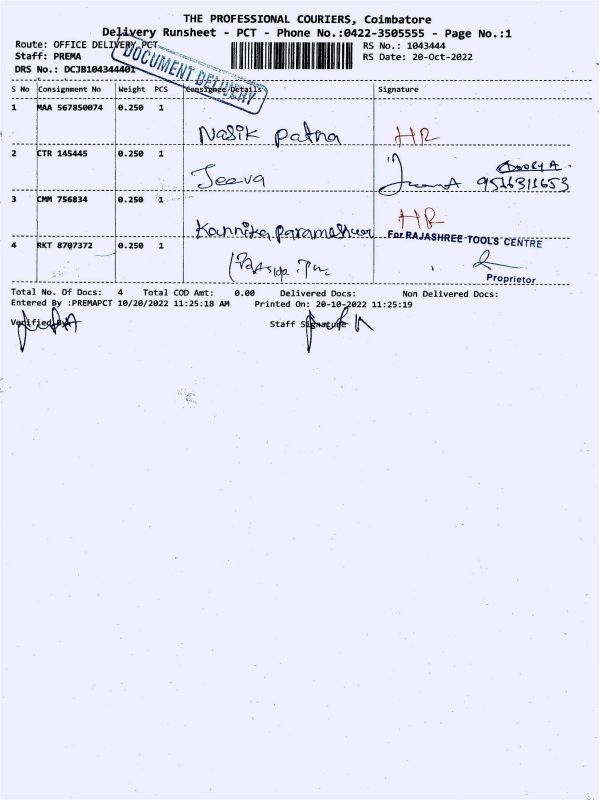 THE PROFESSIONAL COURIERS, Coimbatore
Delivery Runsheet - PCT - Phone No.:0422-3505555 - Page No.:1
Route: OFFICE DELIVERY PCT RS No.: 1043444
Staff: PREMA RS Date: 20-Oct-2022
DRS No.: DCJB104344401
DOCUMENT DELIVERY
S No Consignment No Weight PCS Consignee Details Signature
1 MAA 567850074 0.250 1
Nasik patna HR
2 CTR 145445 0.250 1
Jeeva 9516311653
3 CMM 756834 0.250 1
Kannika parameshwari HR
For RAJASHREE TOOLS CENTRE
4 RKT 8707372 0.250 1
Proprietor
Total No. Of Docs: 4 Total COD Amt: 0.00 Delivered Docs: Non Delivered Docs:
Entered By :PREMAPCT 10/20/2022 11:25:18 AM Printed On: 20-10-2022 11:25:19
Verified By Staff Signature